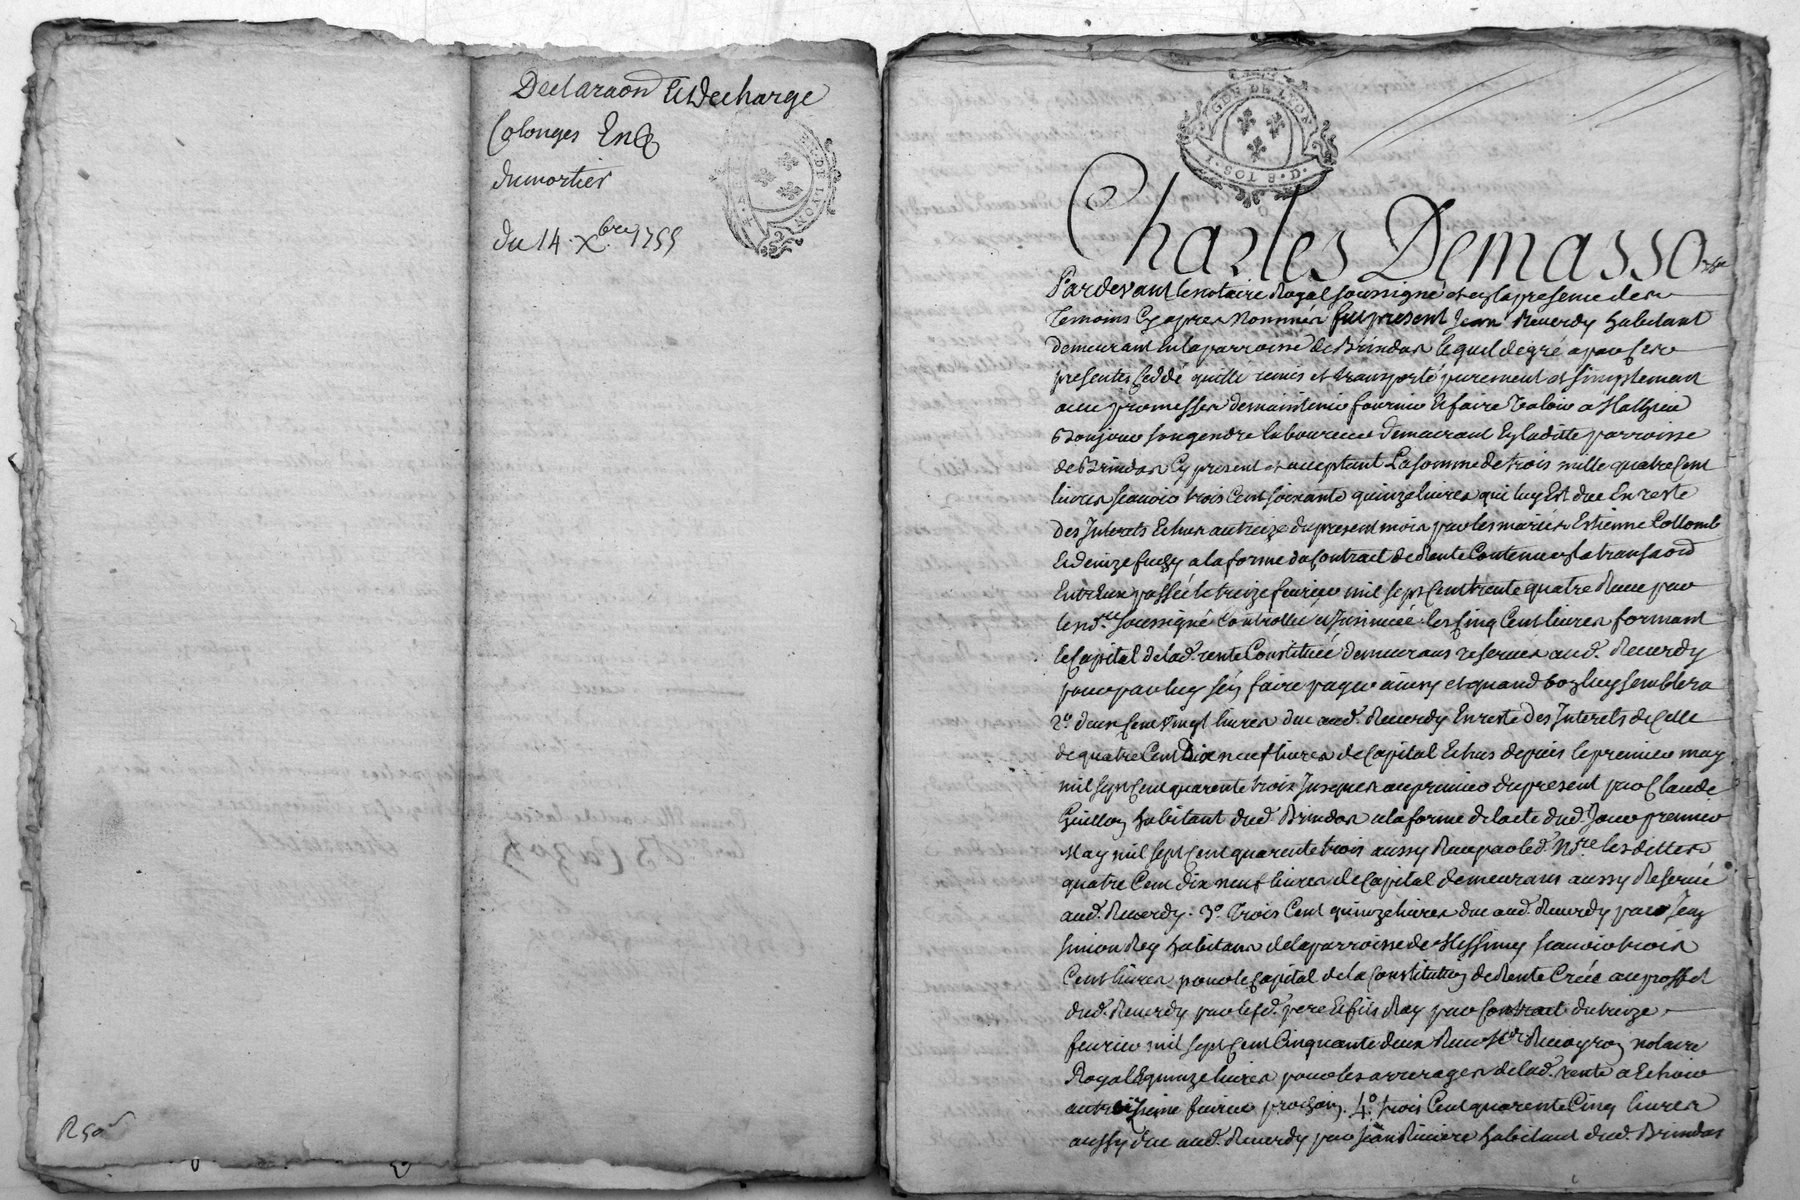 Declaraon Et decharge
Colonges En
dumortier
du 14. Xbre 1755
R 50s
GEN. DE LYON
Charles Demasso
Pardevant le notaire Royal soussigné et en la presence des
Temoins Cy apres Nommés fut present Jean Reverdy habitant
demeurant En la parroisse de Brindas lequel de gré a par ses
presentes Ceddé quitté remis et transporté purement et simplement
avec promesses de maintenir fournir et faire valoir a Mathieu
Bonjour son gendre laboureur demeurant En ladite parroisse
de Brindas Cy present et acceptant La somme de trois mille quatre Cent
livres scavoir trois Cent soixante quinze livres qui luy Est due En reste
Des Interets Echus au treize du present mois par les mariés Estienne Collomb
Et denize a la forme du Contrat de Rente Contenu En la transaon
Entr'Eux passée le treize fevrier mil sept Cent trente quatre Reçue par
le nore soussigné Controllé et Insinuée les Cinq Cent livres formant
le Capital de lad. rente Constituée demeurans reservés aud. Reverdy
pour par luy s'En faire payer ainsy et quand bon luy semblera
2o. deux Cent vingt livres due aud. Reverdy En reste Des Interets de Celle
de quatre Cent Dix neuf livres de Capital Echus depuis le premier may
mil sept Cent quarente trois Jusques au premier du present par Claude
Guillon habitant dud. Brindas a la forme de l'acte dud. Jour premier
May mil sept Cent quarente trois aussy Reçu par led. Nore les dittes
quatre Cent dix neuf livres de Capital demeurans aussy Reservé
aud. Reverdy. 3o. Trois Cent quinze livres due aud. Reverdy par Jean
Simon Rey habitans de la parroisse de Messimy scavoir trois
Cent livres pour le Capital de la Constitution de Rente Créée au proffit
dud. Reverdy par lesd. pere Et fils Rey par Contract du treize
fevrier mil sept Cent Cinquante deux Reçu Me notaire
Royal Et quinze livres pour les arrerages de lad. rente a Echoir
au treisieme fevrier prochain. 4o. trois Cent quarente Cinq livres
aussy due aud. Reverdy par Jean Riviere habitant dud. Brindas